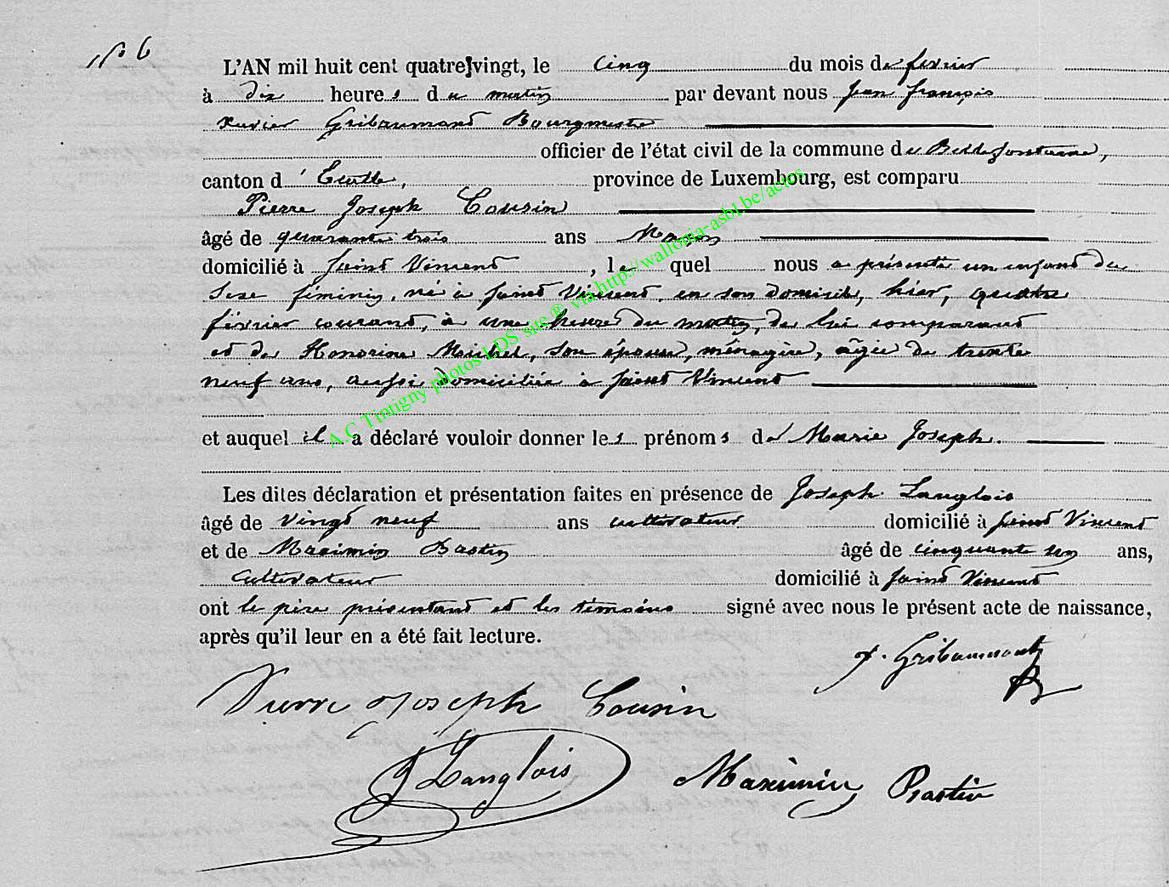 N° 6
L'AN mil huit cent quatre-vingt, le cinq du mois de février
à dix heures du matin par devant nous Jean François
Xavier Gribaumont Bourgmestre
officier de l'état civil de la commune de Bellefontaine,
canton d'Etalle, province de Luxembourg, est comparu
Pierre Joseph Cousin
âgé de quarante trois ans Maçon
domicilié à Saint Vincent, lequel nous a présenté un enfant du
sexe féminin, né à Saint Vincent, en son domicile, hier, quatre
février courant, à une heure du matin, de lui comparant
et de Honorine Michel, son épouse, ménagère, âgée de trente
neuf ans, aussi domiciliée à Saint Vincent
et auquel il a déclaré vouloir donner les prénoms de Marie Joseph.
Les dites déclaration et présentation faites en présence de Joseph Langlois
âgé de vingt neuf ans cultivateur domicilié à Saint Vincent
et de Maximin Bastin âgé de cinquante ans,
cultivateur domicilié à Saint Vincent
ont le père présentant et les témoins signé avec nous le présent acte de naissance,
après qu'il leur en a été fait lecture.
Gribaumont
Pierre Joseph Cousin
J Langlois
Maximin Bastin
A.C Tintigny photos LDS site® via http://wallonia-asbl.be/actes